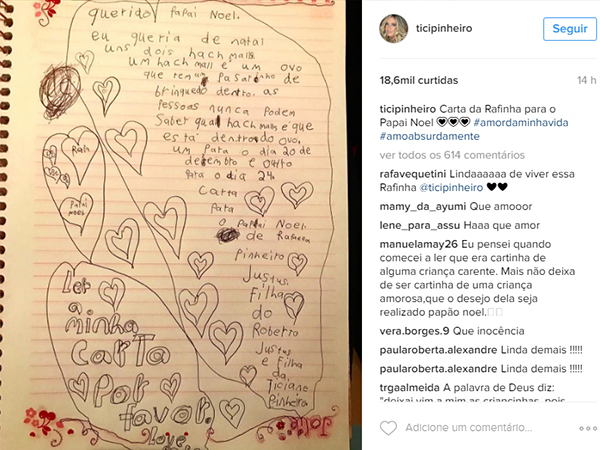 querido Papai Noel.
eu queria de natal
uns dois hach malls
um hach mall é um ovo
que tem um Pasarinho de
brinquedo dentro. as
pessoas nunca podem
saber qual hach malls é que
está dentro do ovo,
um para o dia 20 de
dezembro e outro
para o dia 24.
Carta
para
o papai Noel.
de Rafaella
Pinheiro
Justus.
Filha
do
Roberto
Justus
e Filha
da
Ticiane
Pinheiro
Rafa
Papai
noel
ler
a
minha
carta
Por
favor.
Love
ticipinheiro
Seguir
18,6mil curtidas
14 h
ticipinheiro Carta da Rafinha para o
Papai Noel 🖤🖤🖤 #amordaminhavida
#amoabsurdamente
ver todos os 614 comentários
rafavequetini Lindaaaaaa de viver essa
Rafinha @ticipinheiro 🖤🖤
mamy_da_ayumi Que amooor
lene_para_assu Haaa que amor
manuelamay26 Eu pensei quando
comecei a ler que era cartinha de
alguma criança carente. Mais não deixa
de ser cartinha de uma criança
amorosa,que o desejo dela seja
realizado papão noel.
vera.borges.9 Que inocência
paularoberta.alexandre Linda demais !!!!!
paularoberta.alexandre Linda demais !!!!!
trgaalmeida A palavra de Deus diz:
"deixai vim a mim as criancinhas, pois
Adicione um comentário...